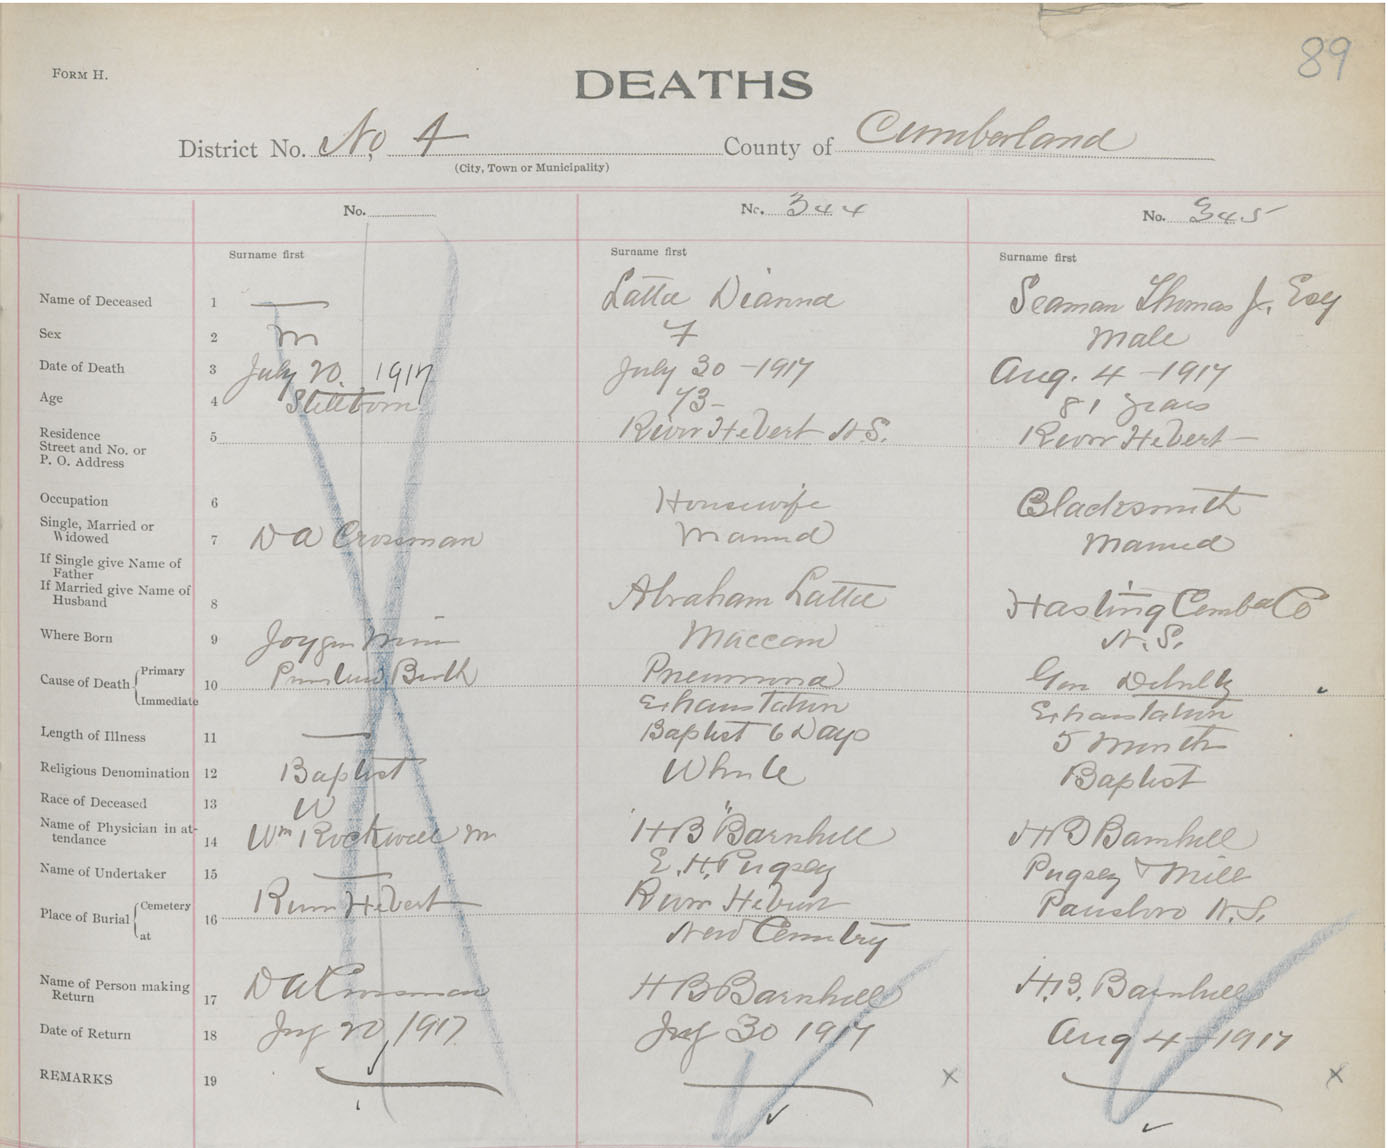 89
FORM H.
DEATHS
District No. No. 4 County of Cumberland
(City, Town or Municipality)
No. No. 344 No. 345
Surname first Surname first Surname first
Name of Deceased 1 — Latta Dianna Seaman Thomas Jr. Esq
Sex 2 M F Male
Date of Death 3 July 20 1917 July 30 - 1917 Aug. 4 - 1917
Age 4 Stillborn 73 - 81 years
Residence
Street and No. or
P. O. Address 5 River Hebert N.S. River Hebert -
Occupation 6 Housewife Blacksmith
Single, Married or
Widowed 7 D A Crossman Married Married
If Single give Name of
Father
If Married give Name of
Husband 8 Abraham Latta Hasting Co
Where Born 9 Joggin Maccan N.S.
Cause of Death Primary 10 Birth Pneumonia Gen Debility
Immediate Exhaustation Exhaustation
Length of Illness 11 — Baptist 6 Days 5 Month
Religious Denomination 12 Baptist White Baptist
Race of Deceased 13 W "
Name of Physician in at-
tendance 14 Wm Rockwell H B Barnhill H B Barnhill
Name of Undertaker 15 — E. H. Pugsley Pugsley & Mill
Place of Burial Cemetery 16 River Hebert River Hebert Parrsboro N.S.
at New Cemetry
Name of Person making
Return 17 D A Crossman H B Barnhill H. B. Barnhill
Date of Return 18 July 20 1917 July 30 1917 Aug 4 - 1917
REMARKS 19 x x